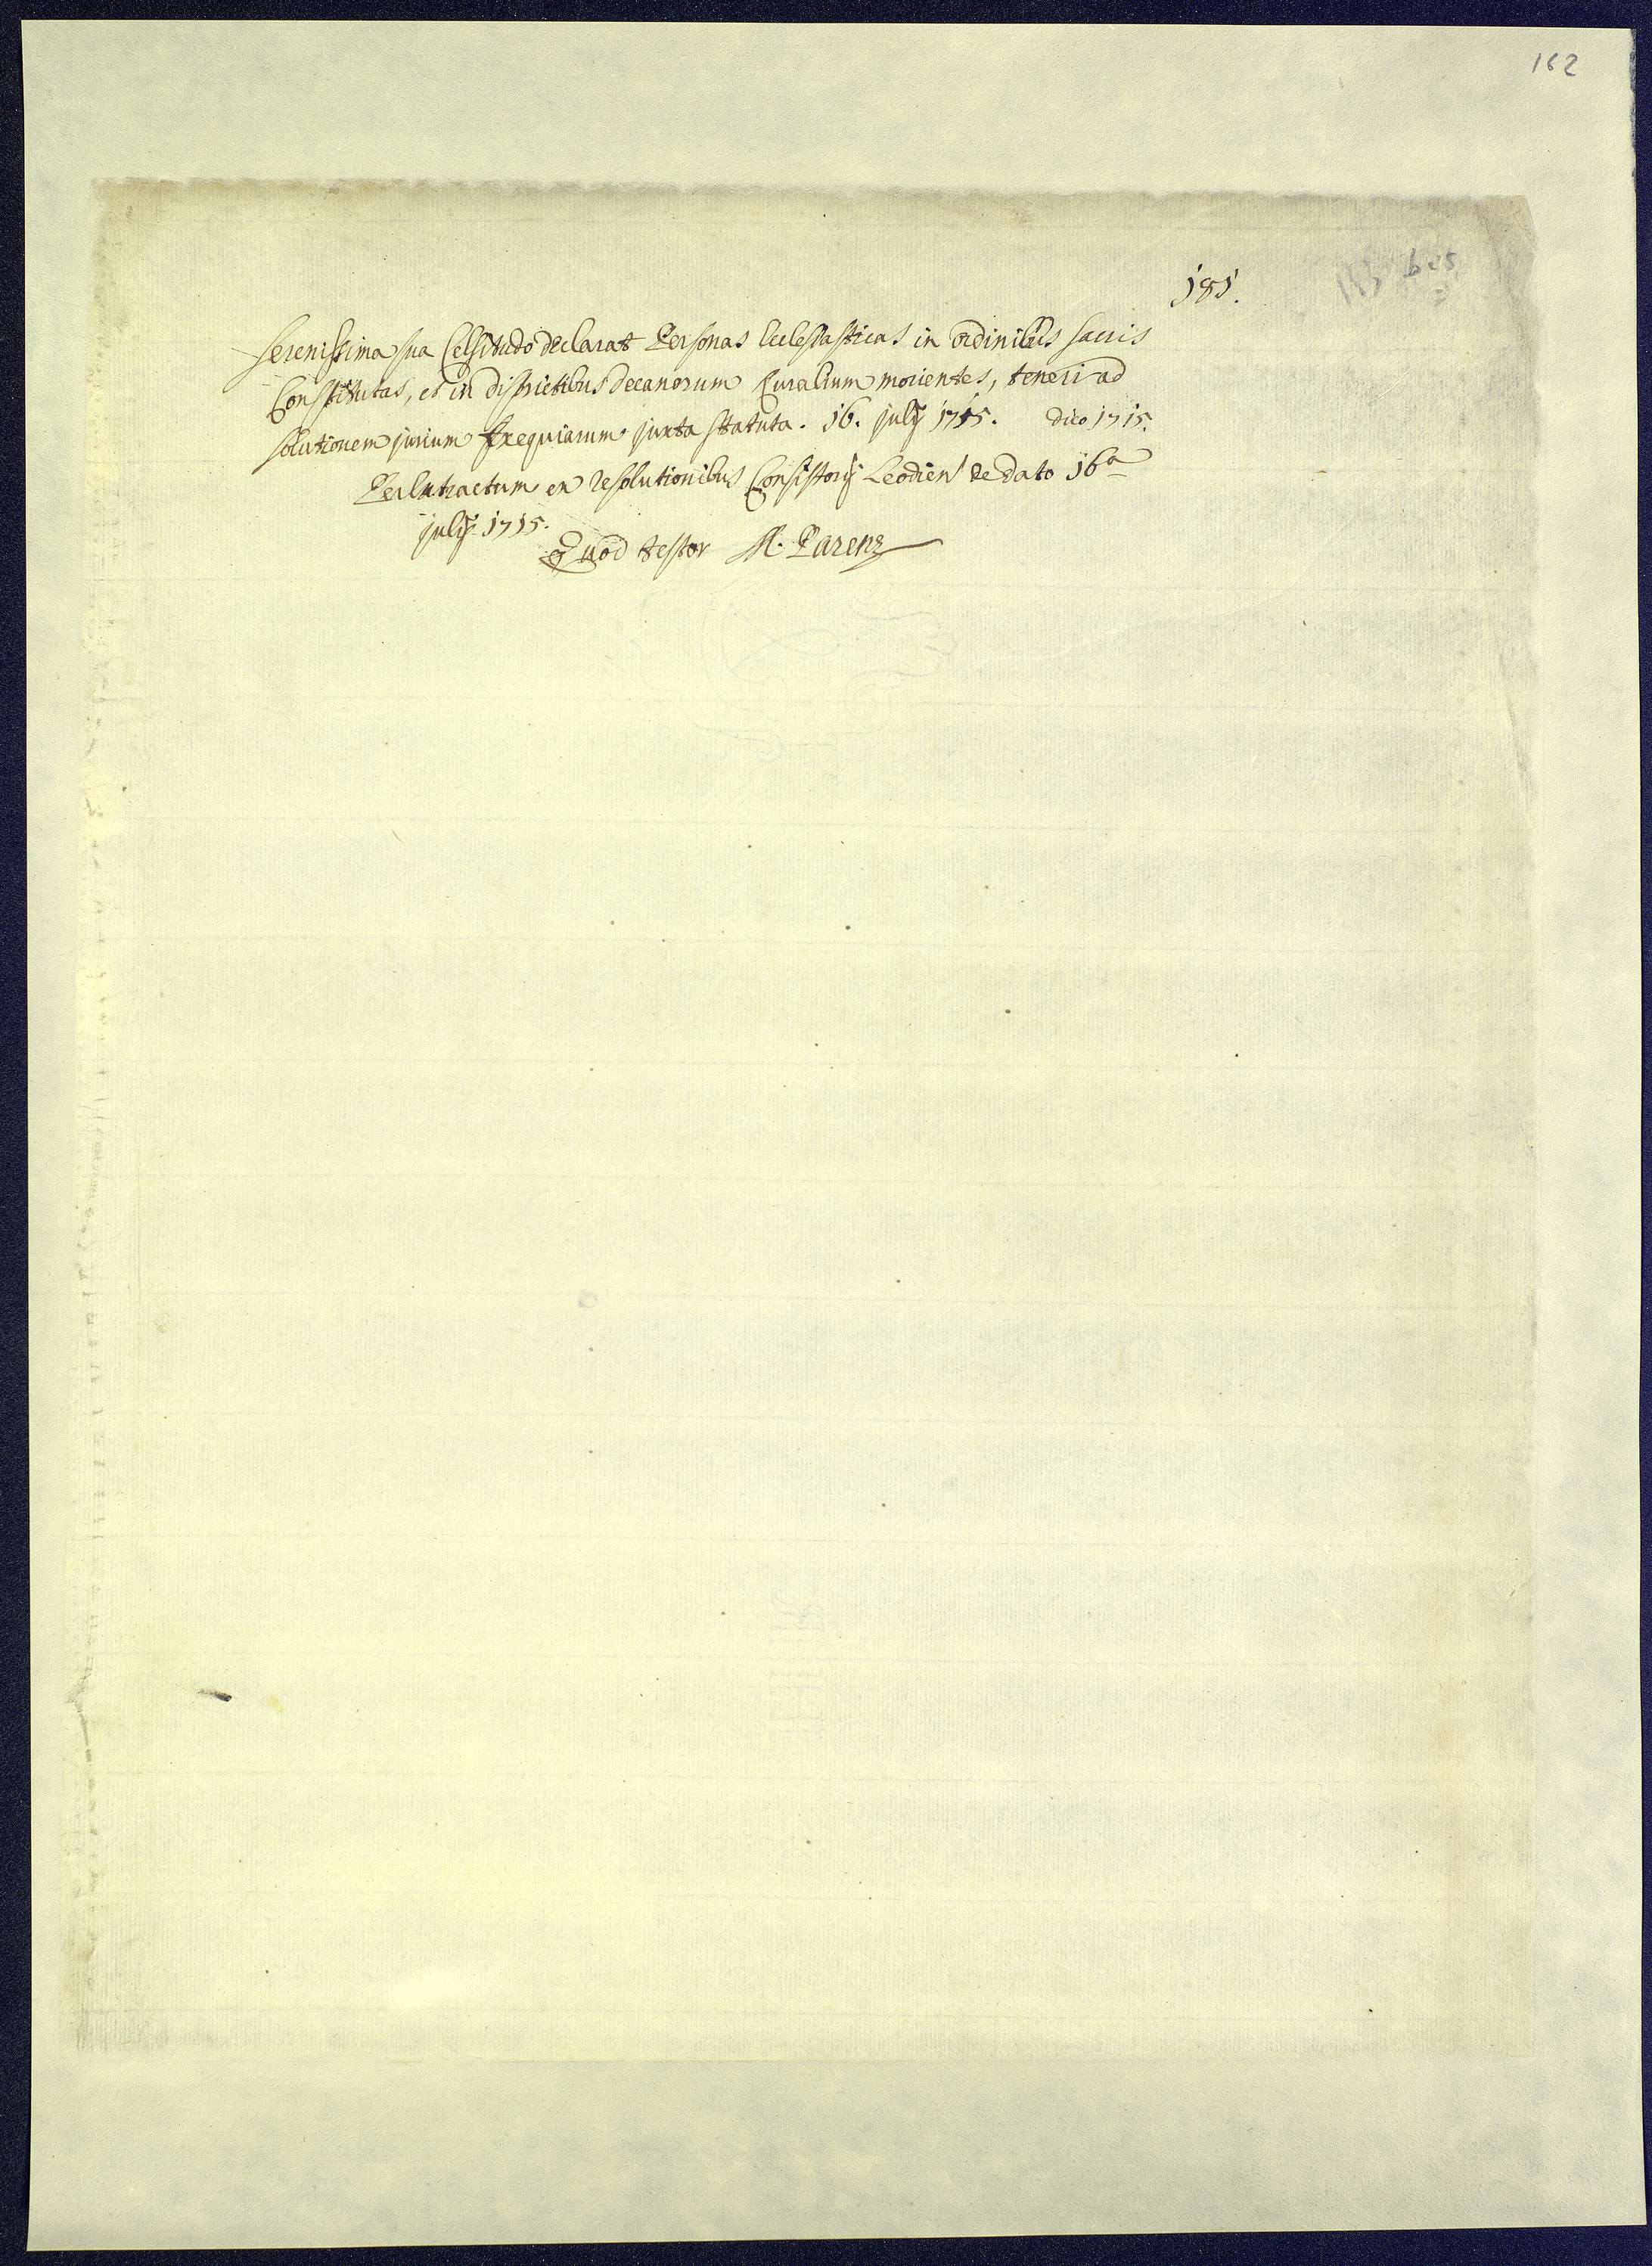 162
181.
bis
Serenissima sua Celsitudo declarat Personas Ecclesiasticas in ordinibus sacris
Constitutas, et in districtibus decanorum Ruralium morientes, teneri ad
solutionem jurium Exequiarum juxta statuta. 16. julij 1715. dico 1715.
Per Extractum ex resolutionibus Consistorij Leodien de dato 16a
julij 1715.
Quod testor M. Parenz